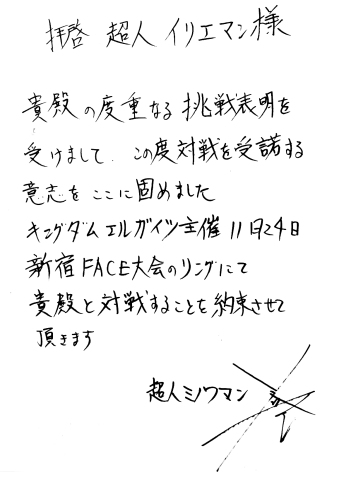 拝啓 超人 イリエマン様
貴殿の度重なる挑戦表明を
受けまして、この度対戦を受諾する
意志をここに固めました
キングダムエルガイツ主催11月24日
新宿FACE大会のリングにて
貴殿と対戦することを約束させて
頂きます
超人ミノワマン